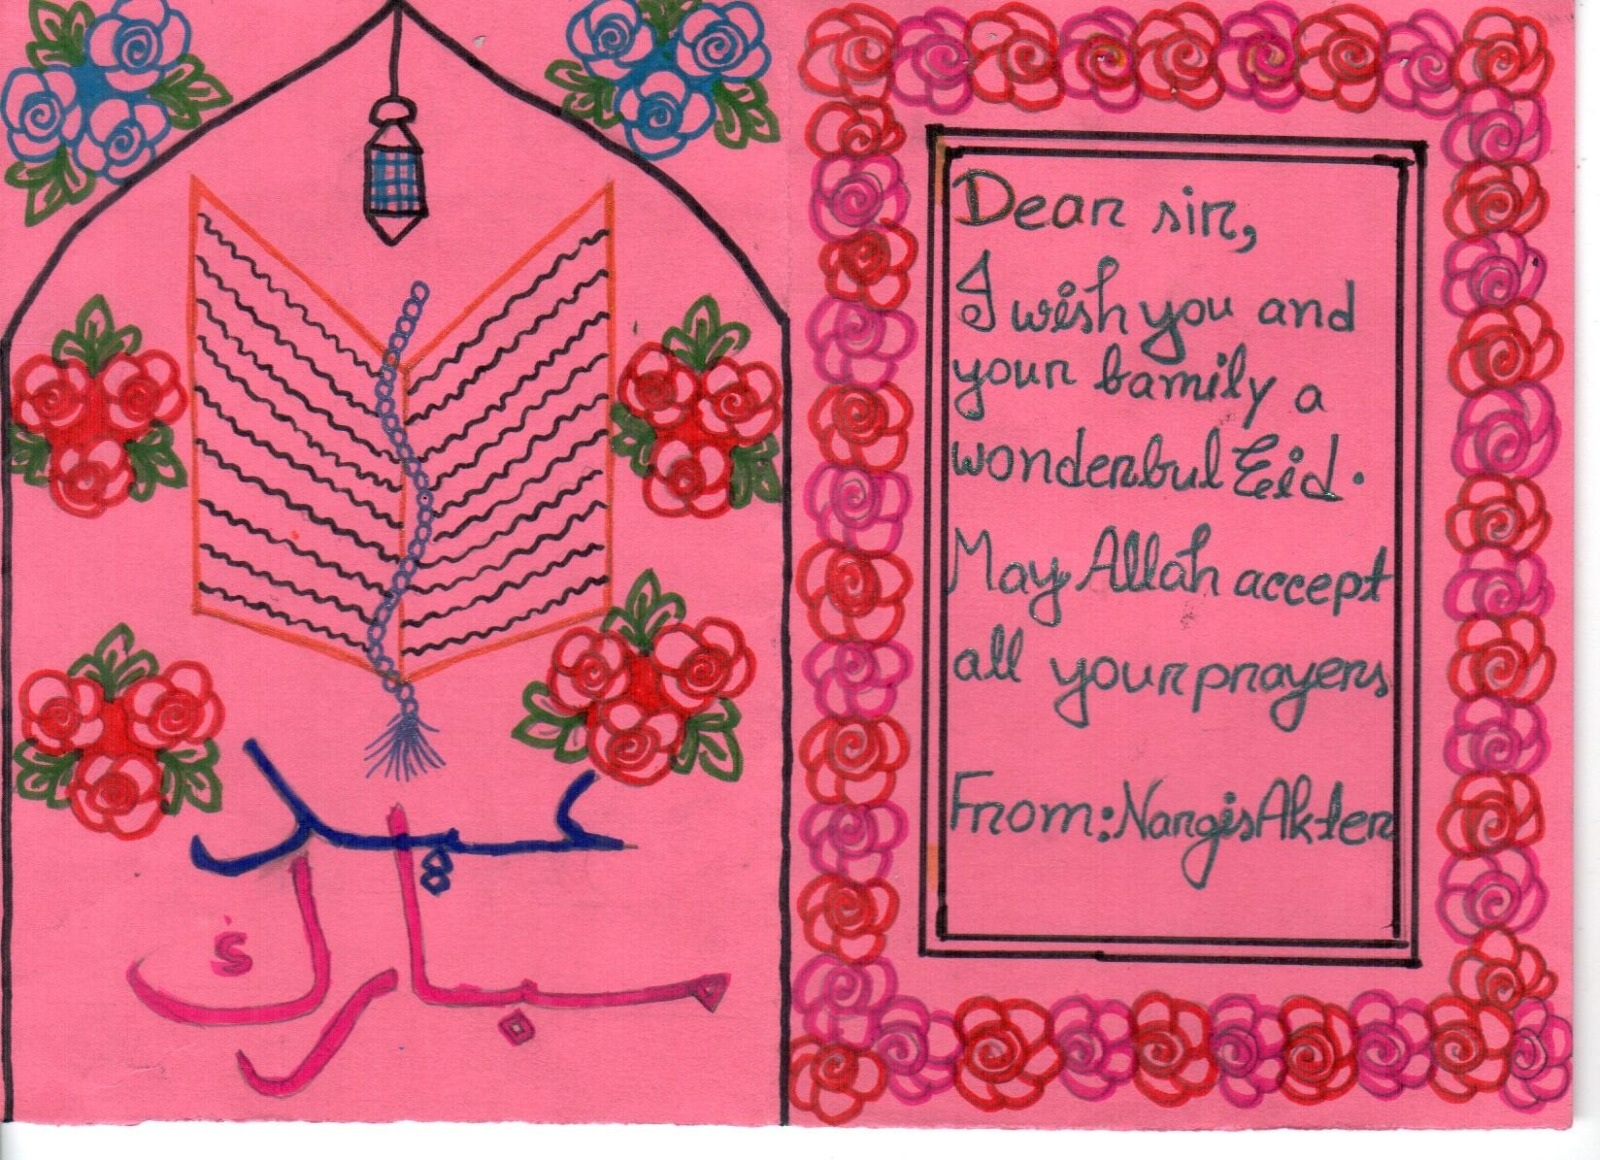 عيد
مبارك
Dear sir,
I wish you and
your family a
wonderful Eid.
May Allah accept
all your prayers
From: Nargis Akter